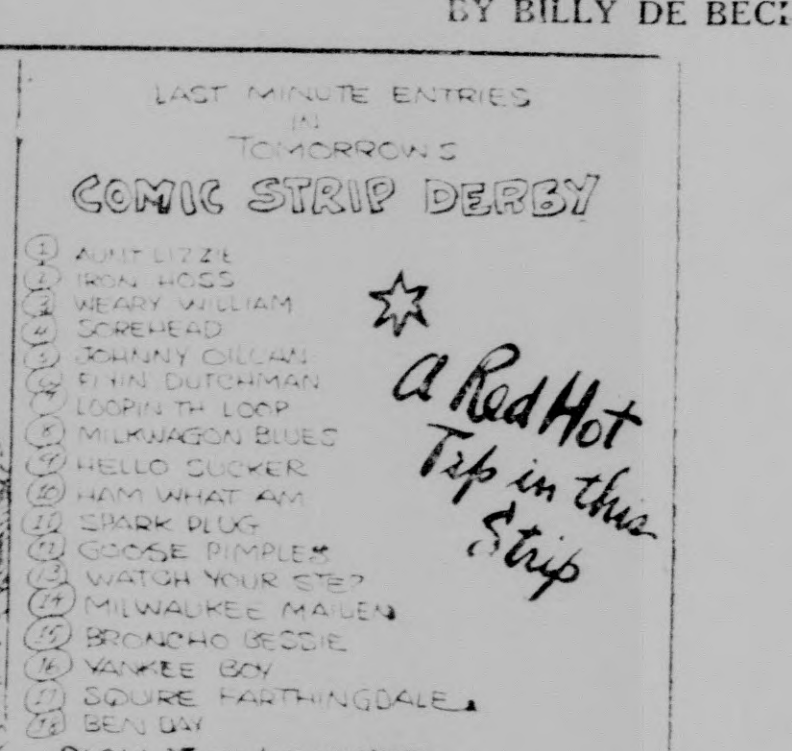 BY BILLY DE BEC
LAST MINUTE ENTRIES
IN
TOMORROWS
COMIC STRIP DERBY
1 AUNT LIZZIE
2 IRON HOSS
3 WEARY WILLIAM
4 SOREHEAD
5 JOHNNY OILCAN
6 FLYIN' DUTCHMAN
7 LOOPIN TH LOOP
8 MILKWAGON BLUES
9 HELLO SUCKER
10 HAM WHAT AM
11 SPARK PLUG
12 GOOSE PIMPLES
13 WATCH YOUR STEP
14 MILWAUKEE MAILEN
15 BRONCHO BESSIE
16 YANKEE BOY
17 SQUIRE FARTHINGDALE
18 BEN DAY
A Red Hot
Tip in this
Strip